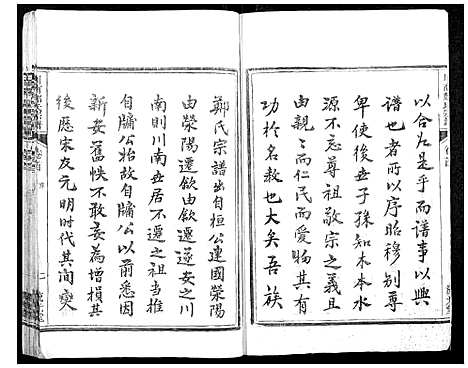 以合为是乎而谱事以興
谱也者所以序昭穆别尊
卑使後世子孫知木本水
源不忘尊祖敬宗之義且
由親親而仁民而爱物其有
功於名教也大矣吾族
鄭氏宗譜出自桓公連國滎陽
由滎陽遷歙由歙遷遂安之川
南則川南世居不遷之祖當推
自牖公始故自牖公以前悉因
新安舊帙不敢妄為增損其
後歷宋及元明时代其间變